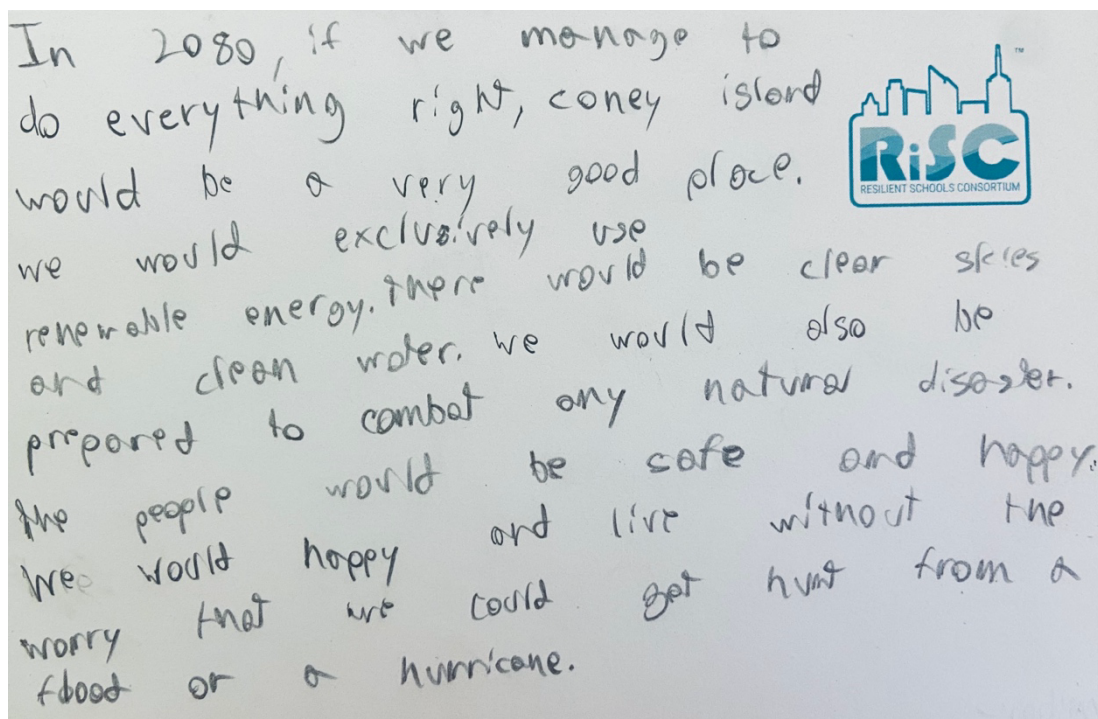 In 2080, if we manage to
do everything right, coney island
would be a very good place.
we would exclusively use
renewable energy. there would be clear skies
and clean water. we would also be
prepared to combat any natural disaster.
the people would be safe and happy.
we would happy and live without the
worry that we could get hurt from a
flood or a hurricane.
RiSC
RESILIENT SCHOOLS CONSORTIUM
TM